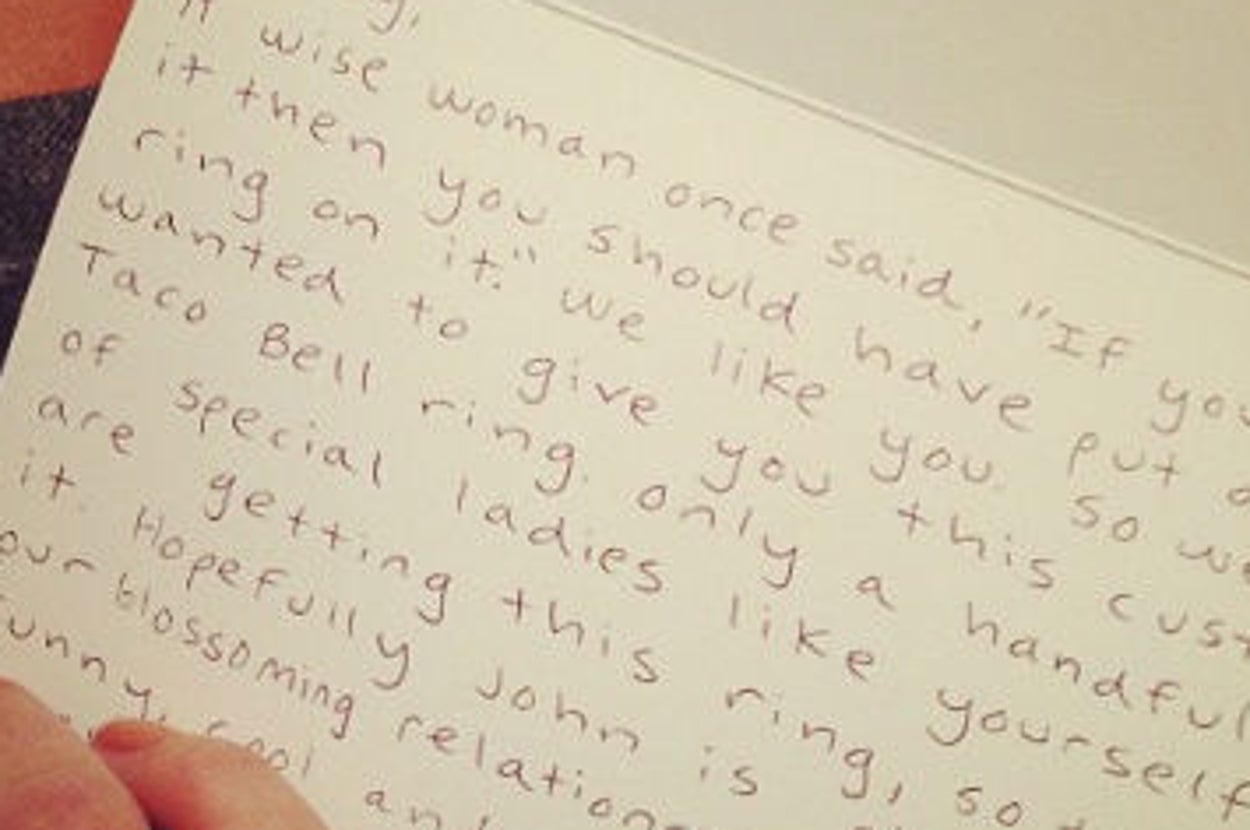 A wise woman once said, "If you
it then you should have put a
ring on it." We like you. So we
wanted to give you this cust
Taco Bell ring. Only a handful
of special ladies like yourself
are getting this ring, so
it. Hopefully John is
our blossoming relation
funny, cool